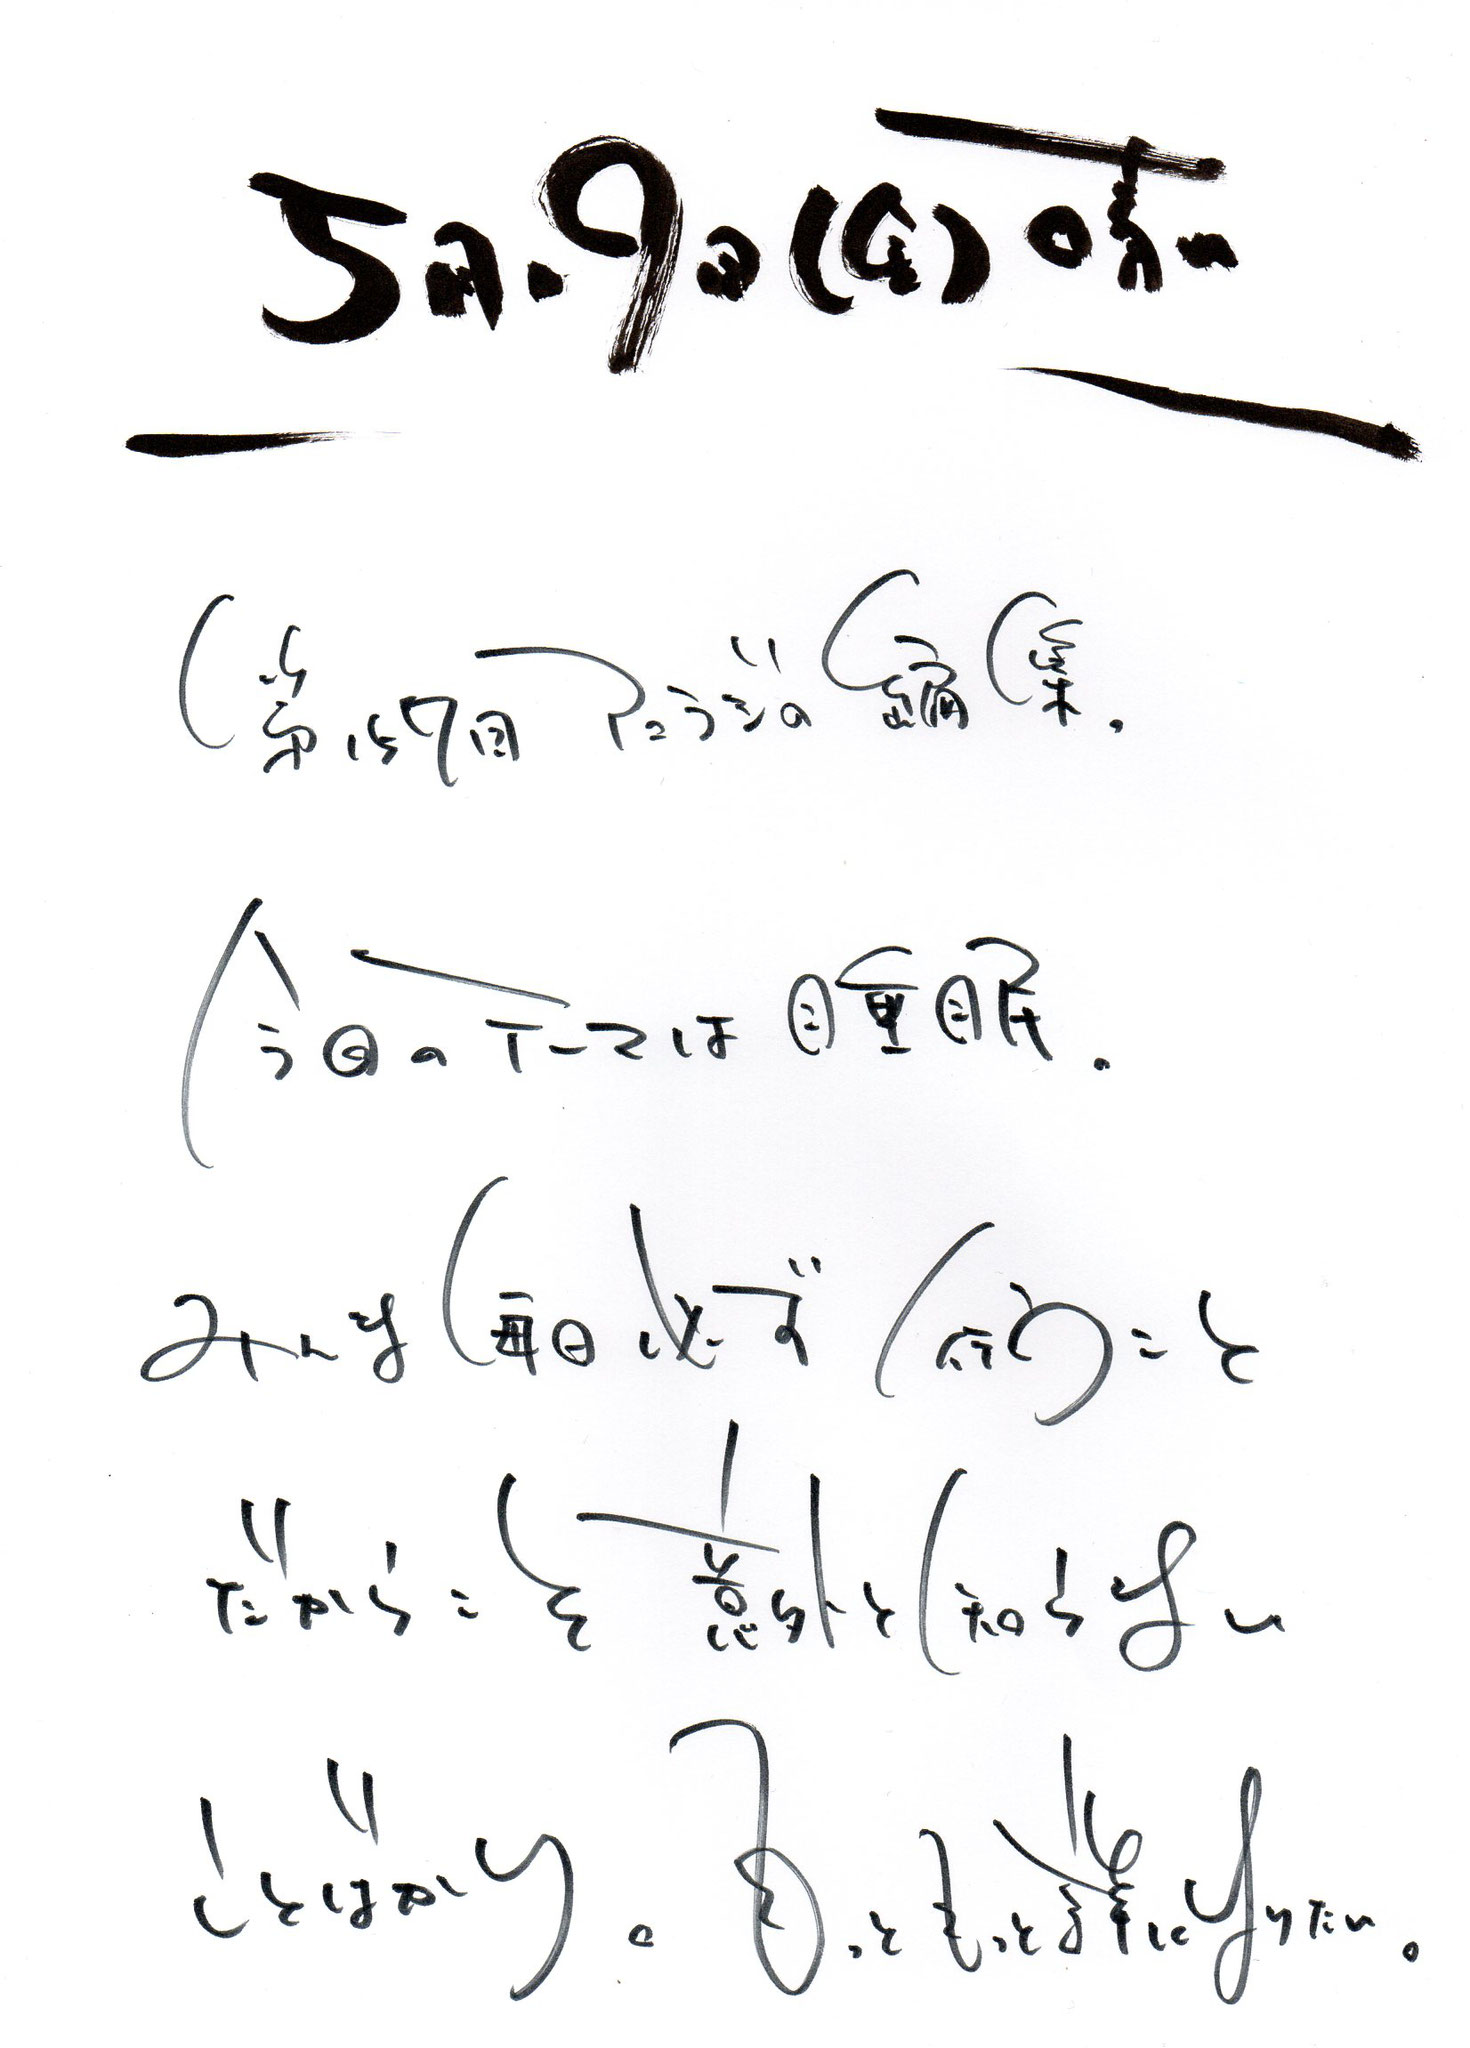 5月9日(金)晴れ
第157回アユラジの編集。
今回のテーマは睡眠。
みんな毎日必ず行うこと
だからこそ意外と知らない
ことばかり。もっともっと謙虚になりたい。